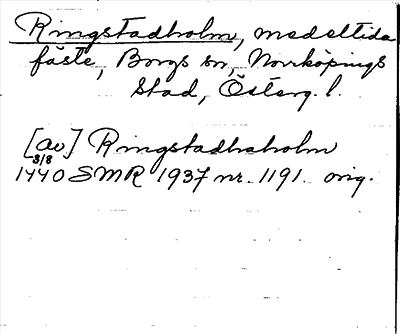 Ringstadholm, medeltida
fäste, Borgs sn, Norrköpings
stad, Österg. l.
[av] Ringstadhaholm
3/8
1440 SMR 1937 nr. 1191. orig.